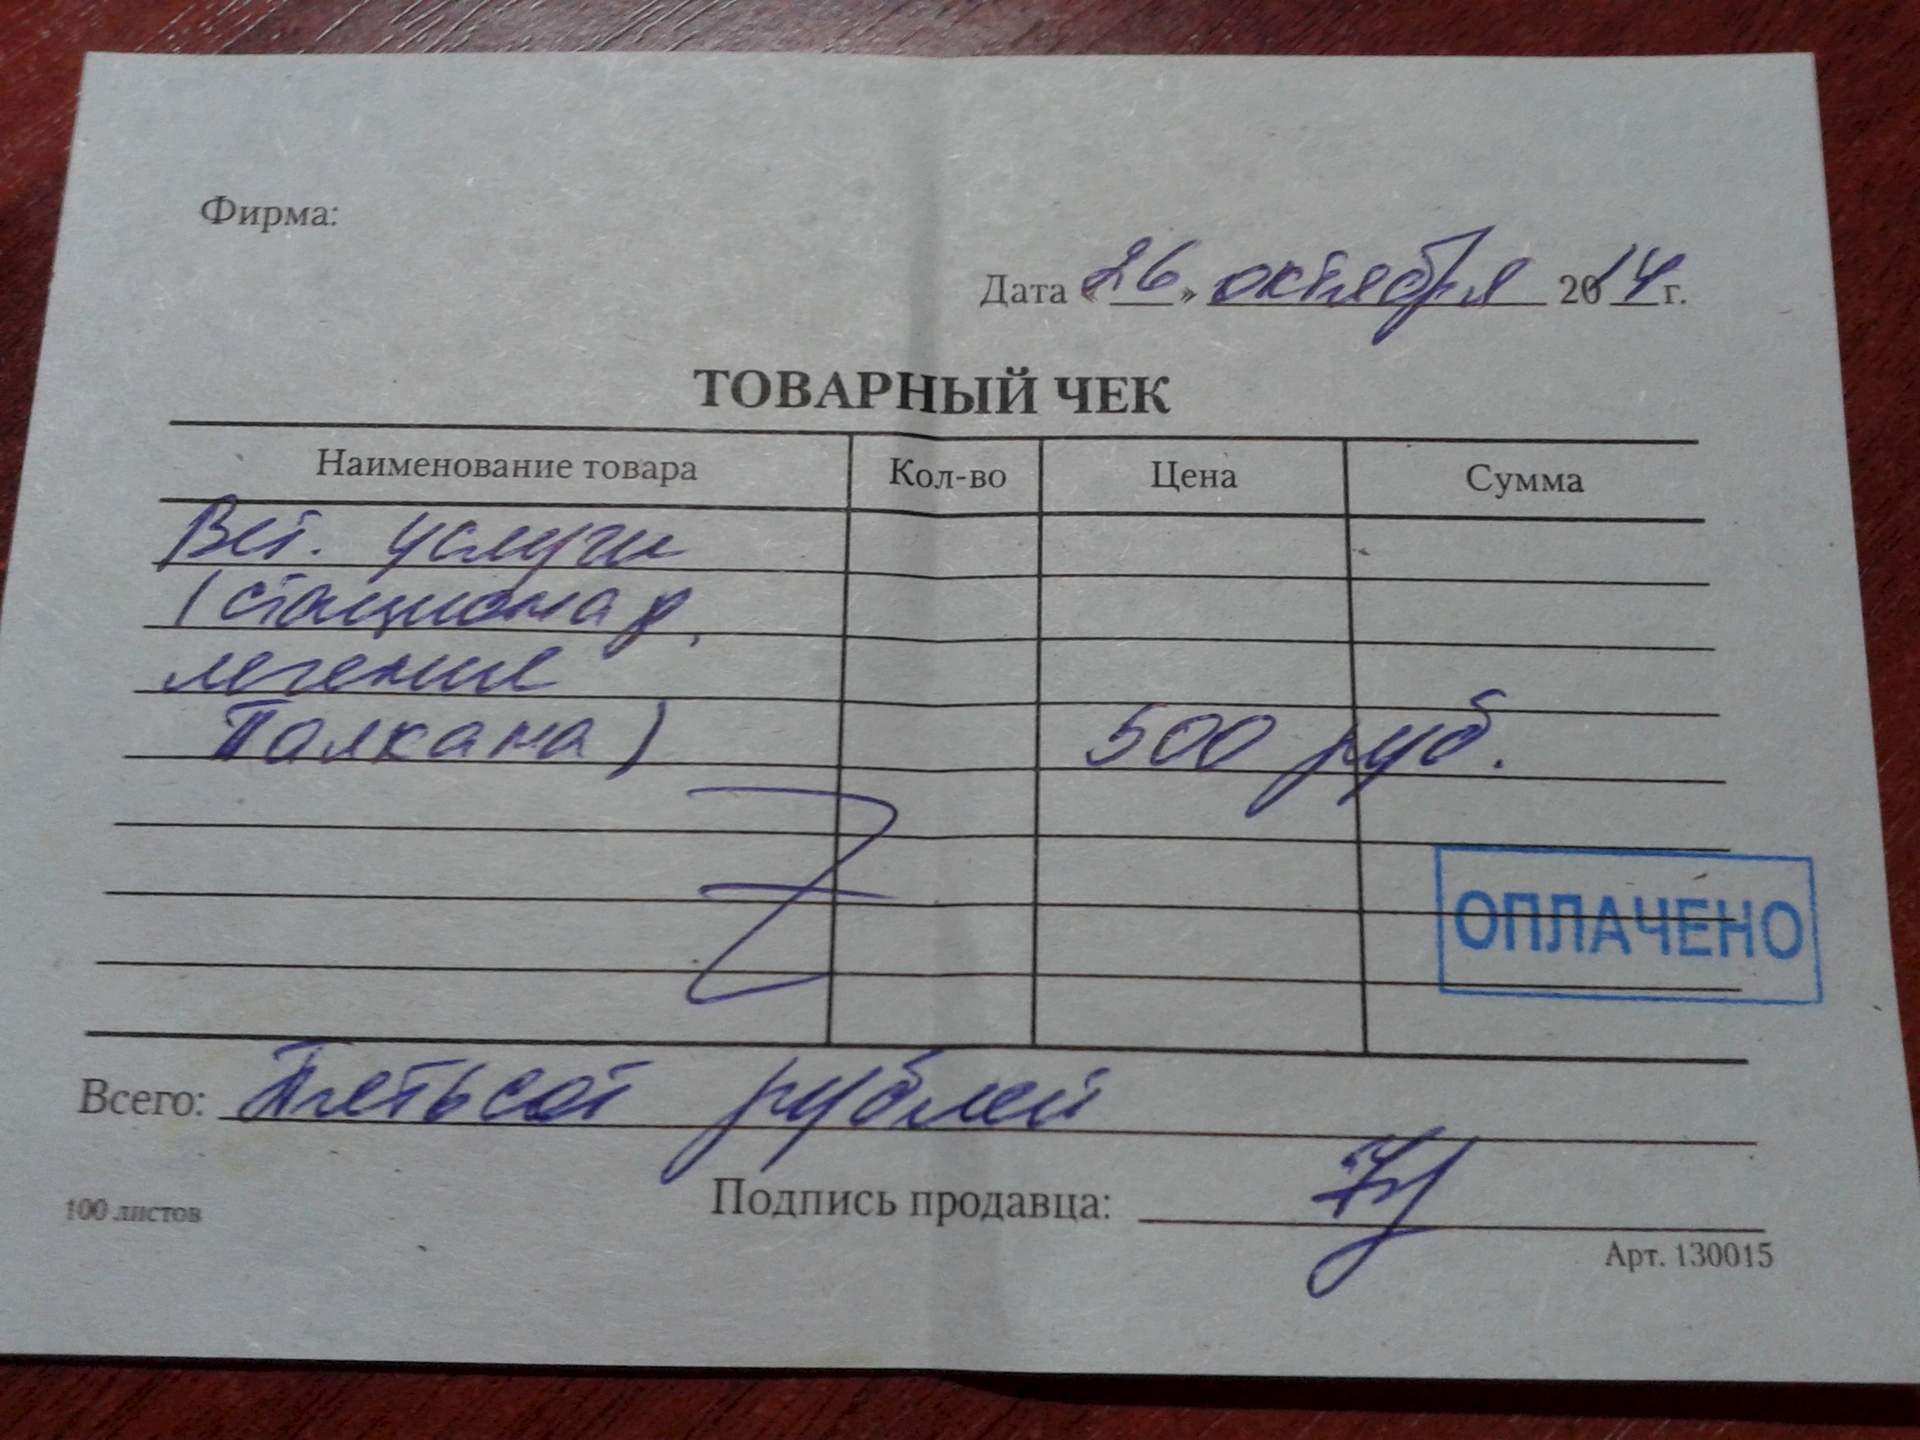 Фирма:
Дата «26» октября 2014 г.
ТОВАРНЫЙ ЧЕК
Наименование товара Кол-во Цена Сумма
Вет. услуги
(стационар,
лечение
Полкана) 500 руб.
ОПЛАЧЕНО
Всего: Пятьсот рублей
Подпись продавца:
100 листов
Арт. 130015